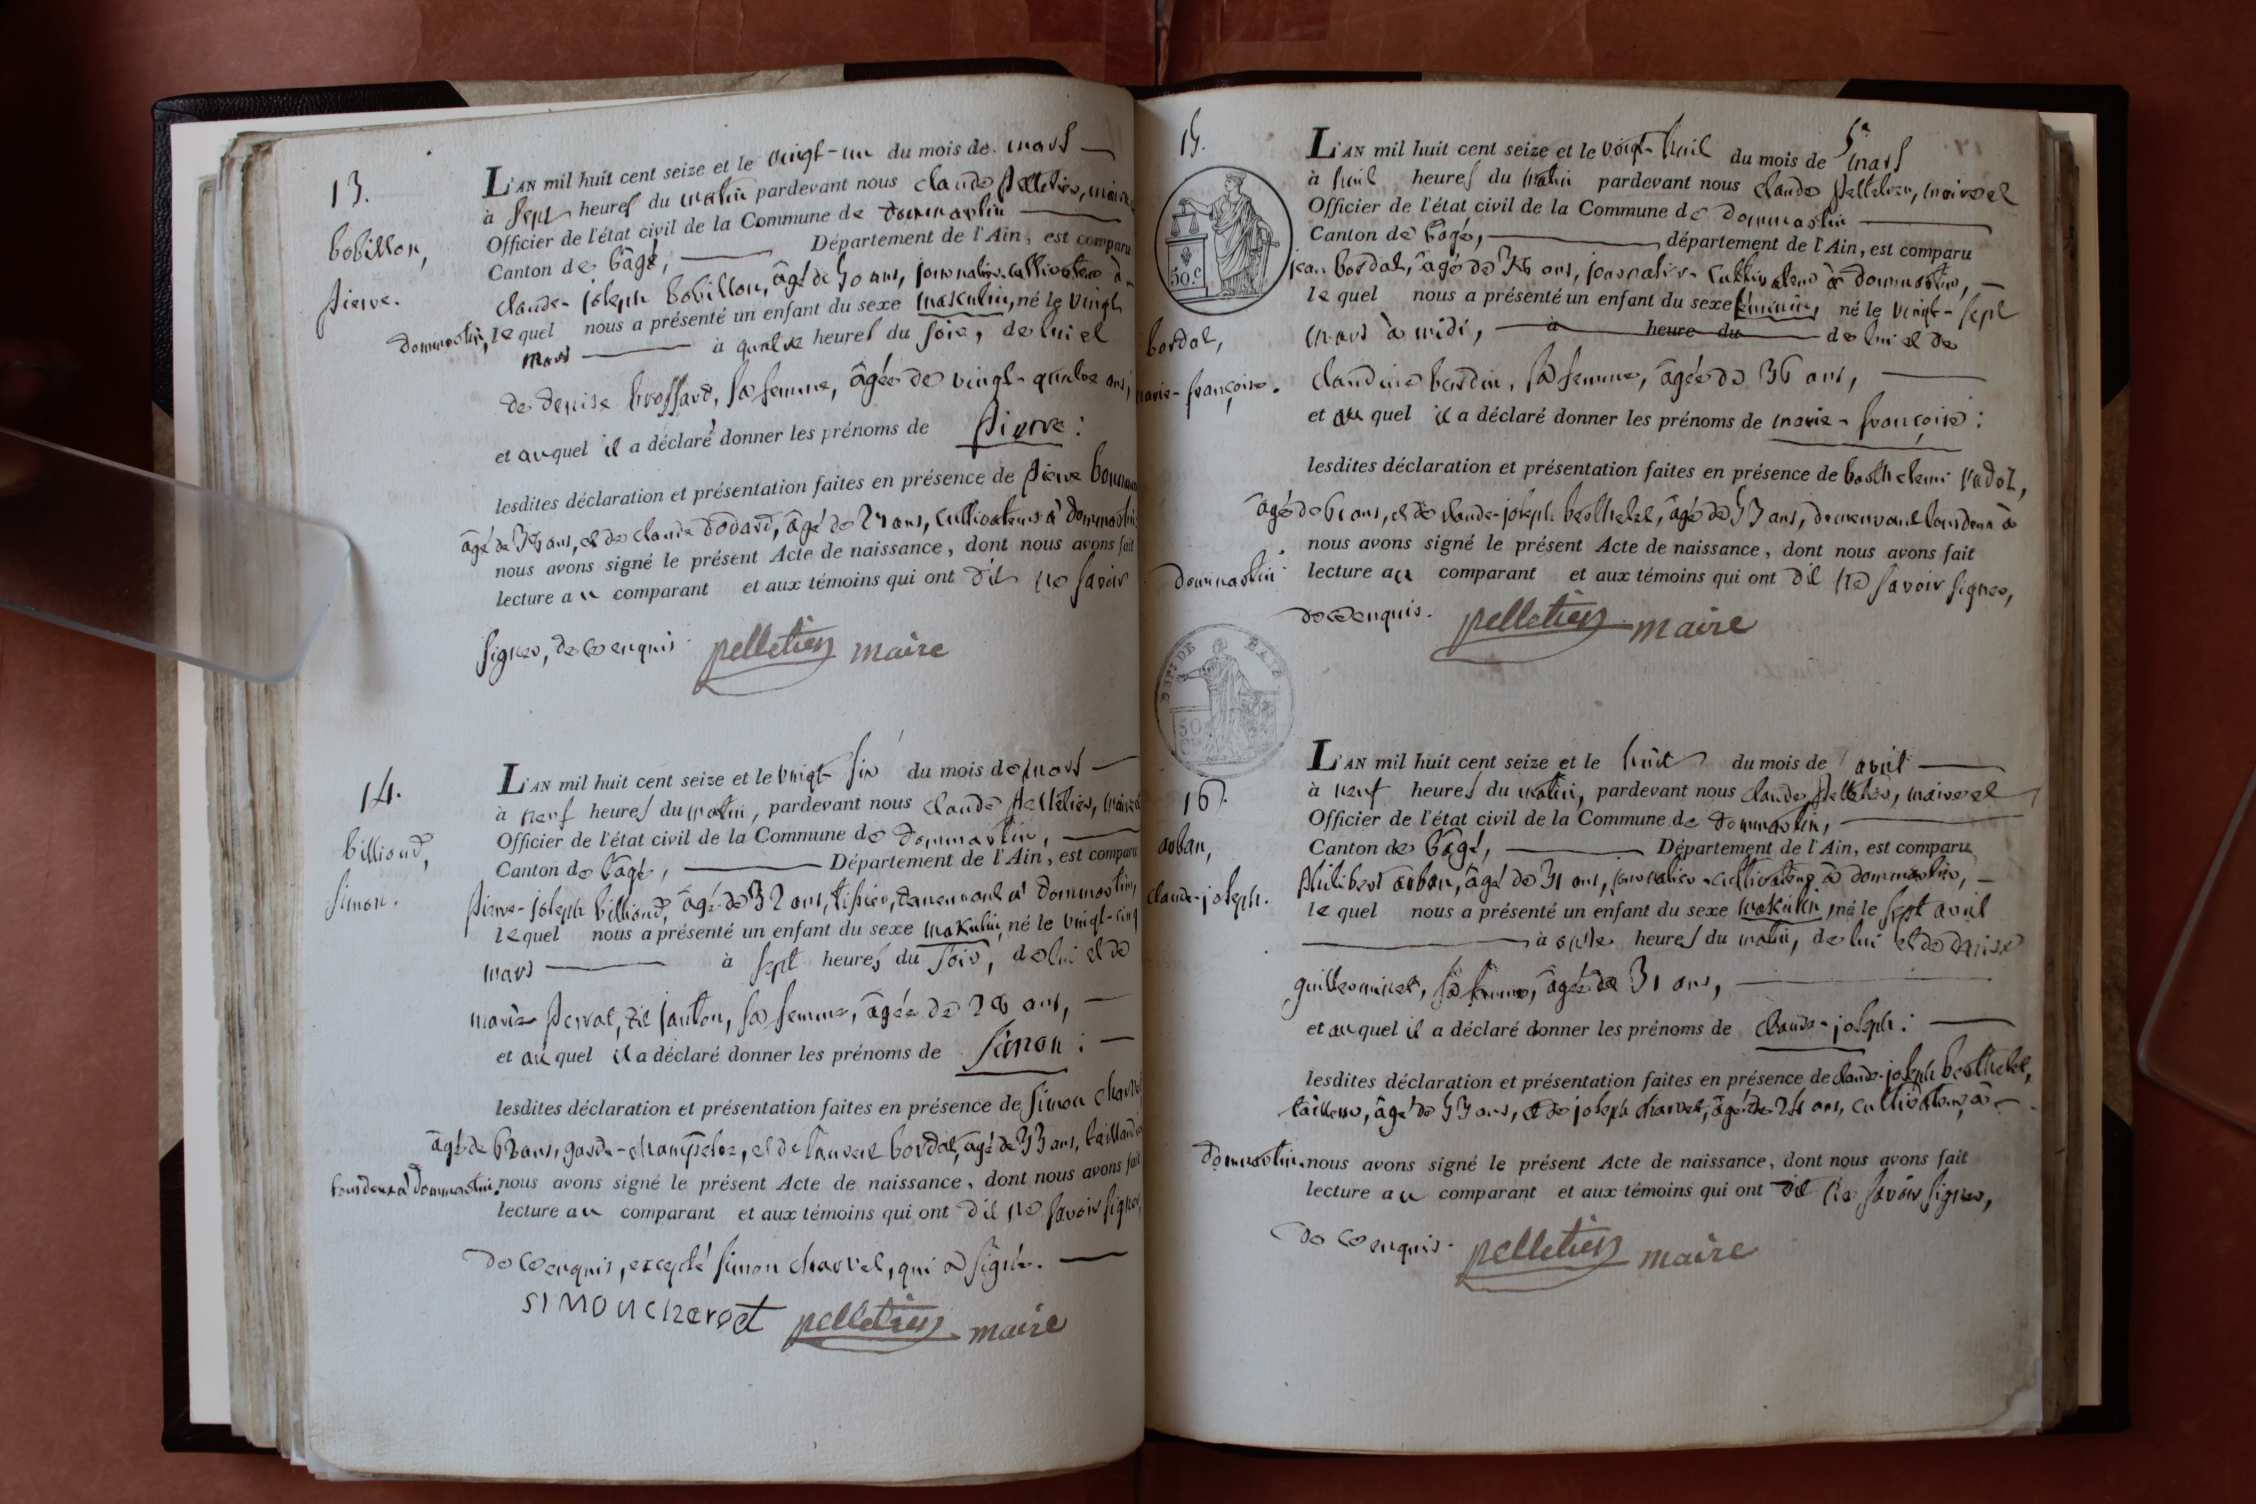 13.
bobillon,
pierre.
L'AN mil huit cent seize et le vingt-un du mois de mars
à sept heures du matin pardevant nous claude pelletier, maire
Officier de l'état civil de la Commune de dommartin
Canton de bâgé, Département de l'Ain, est comparu
claude-joseph bobillon, âgé de 50 ans, journalier-cultivateur à
dommartin, lequel nous a présenté un enfant du sexe masculin, né le vingt
mars à quatre heures du soir, de lui et
de denise brossard, sa femme, âgée de vingt-quatre ans,
et auquel il a déclaré donner les prénoms de pierre:
lesdites déclaration et présentation faites en présence de pierre
âgé de ans, et de claude dodard, âgé de ans, cultivateurs à dommartin
nous avons signé le présent Acte de naissance, dont nous avons fait
lecture au comparant et aux témoins qui ont dit ne savoir
signer, de ce enquis. pelletier maire
14.
billioud,
simon.
L'AN mil huit cent seize et le vingt six du mois de mars
à neuf heures du matin, pardevant nous claude pelletier, maire et
Officier de l'état civil de la Commune de dommartin,
Canton de bâgé, Département de l'Ain, est comparu
pierre-joseph billioud, âgé de 32 ans, tissier, demeurant à dommartin,
lequel nous a présenté un enfant du sexe masculin, né le vingt-cinq
mars à sept heures du soir, de lui et de
marie perrat, dit janton, sa femme, âgée de 28 ans,
et au quel il a déclaré donner les prénoms de simon:
lesdites déclaration et présentation faites en présence de simon charvet
âgé de ans, garde-champêtre, et de laurent bordat, âgé de 33 ans, taillandier
tous deux à dommartin. nous avons signé le présent Acte de naissance, dont nous avons fait
lecture au comparant et aux témoins qui ont dit ne savoir signer,
de ce enquis, excepté simon charvet, qui a signé.
simon charvet pelletier maire
15.
50.c
bordat,
marie-françoise.
5e
L'AN mil huit cent seize et le vingt-huit du mois de mars
à huit heures du matin pardevant nous claude pelletier, maire et
Officier de l'état civil de la Commune de dommartin
Canton de bâgé, département de l'Ain, est comparu
jean bordat, âgé de 36 ans, journalier-cultivateur à dommartin,
lequel nous a présenté un enfant du sexe féminin, né le vingt-sept
mars à midi, à heure du de lui et de
claudine bardin, sa femme, âgée de 36 ans,
et au quel il a déclaré donner les prénoms de marie-françoise:
lesdites déclaration et présentation faites en présence de barthelemi vadot,
âgé de 61 ans, et de claude-joseph berthelet, âgé de 53 ans, demeurant tous deux à
nous avons signé le présent Acte de naissance, dont nous avons fait
dommartin. lecture au comparant et aux témoins qui ont dit ne savoir signer,
de ce enquis. pelletier maire
16.
arban,
claude-joseph.
L'AN mil huit cent seize et le huit du mois de avril
à neuf heures du matin, pardevant nous claude pelletier, maire et
Officier de l'état civil de la Commune de dommartin,
Canton de bâgé, Département de l'Ain, est comparu
philibert arban, âgé de 31 ans, journalier-cultivateur à dommartin,
lequel nous a présenté un enfant du sexe masculin, né le sept avril
à onze heures du matin, de lui et de denise
guilleminet, sa femme, âgée de 31 ans,
et au quel il a déclaré donner les prénoms de claude-joseph:
lesdites déclaration et présentation faites en présence de claude-joseph berthelet,
tailleur, âgé de 53 ans, et de joseph charvet, âgé de 24 ans, cultivateur, à
dommartin. nous avons signé le présent Acte de naissance, dont nous avons fait
lecture au comparant et aux témoins qui ont dit ne savoir signer,
de ce enquis. pelletier maire